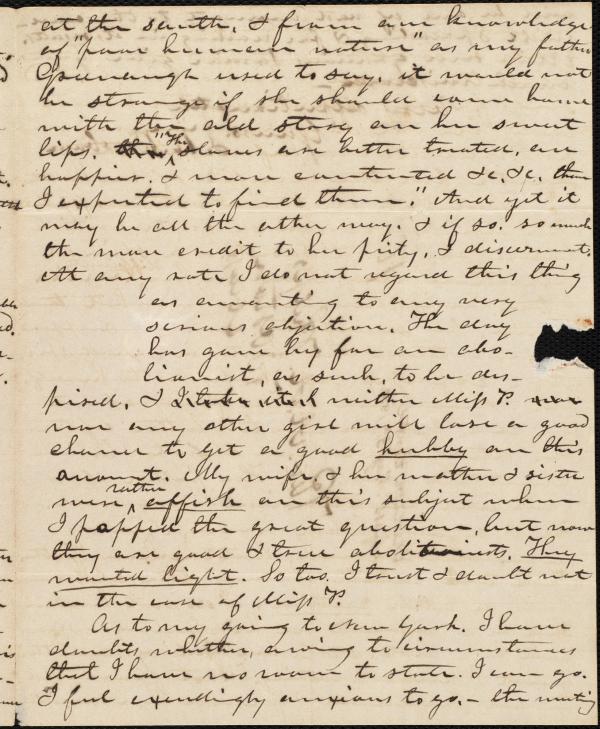 at the south, & from our knowledge
of "poor human nature" as my father
Greenough used to say, it would not
be strange if she should come home
with the old story on her sweet
lips. "The slaves are better treated, are
happier, & more contented &c, &c, than
I expected to find them." And yet it
may be all the other way. & if so, so much
the more credit to her piety, & discernment.
At any rate I do not regard this thing
as amounting to any very
serious objection. The day
has gone by for an abo-
litionist, as such, to be des-
pised, & I neither Miss P. nor
nor any other girl will lose a good
chance to get a good hubby on this
amount. My wife & her mother & sister
were rather offish on this subject when
I popped the great question, but now
they are good & true abolitionists. They
wanted light. So too, I trust & doubt not
in the case of Miss P.
As to my going to New York. I have
doubts, whether, owing to circumstances
that I have no room to state, I can go.
I feel exceedingly anxious to go, - the meeting